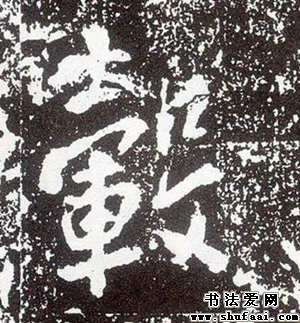 轂
书法爱网
www.shufaai.com